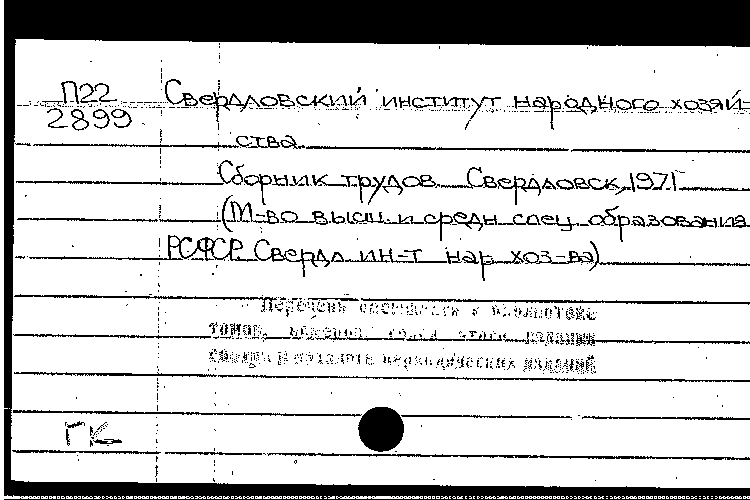 П22
2899
Свердловский институт народного хозяй-
ства
Сборник трудов. Свердловск, 1971-
(М-во высш. и средн спец образования
РСФСР. Свердл ин-т нар хоз-ва)
Перечень имеющихся в библиотеке
томов, номеров, годов этого издания
смотри в каталоге периодических изданий
ГК